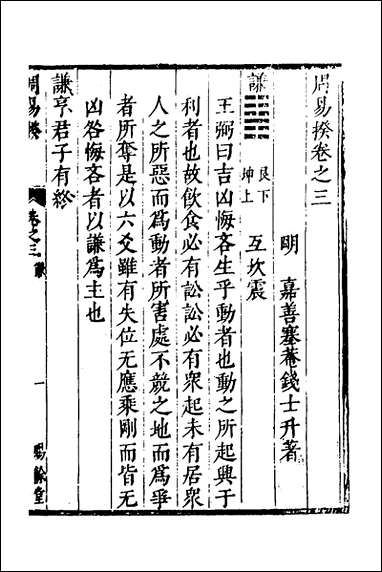 周易揆卷之三
明 嘉善塞菴錢士升著
謙 艮下 坤上 互坎震
王弼曰吉凶悔吝生乎動者也動之所起興于
利者也故飲食必有訟訟必有衆起未有居衆
人之所惡而爲動者所害處不競之地而爲爭
者所奪是以六爻雖有失位无應乘剛而皆无
凶咎悔吝者以謙爲主也
謙亨君子有終
周易揆 卷之三 謙 一 賜餘堂